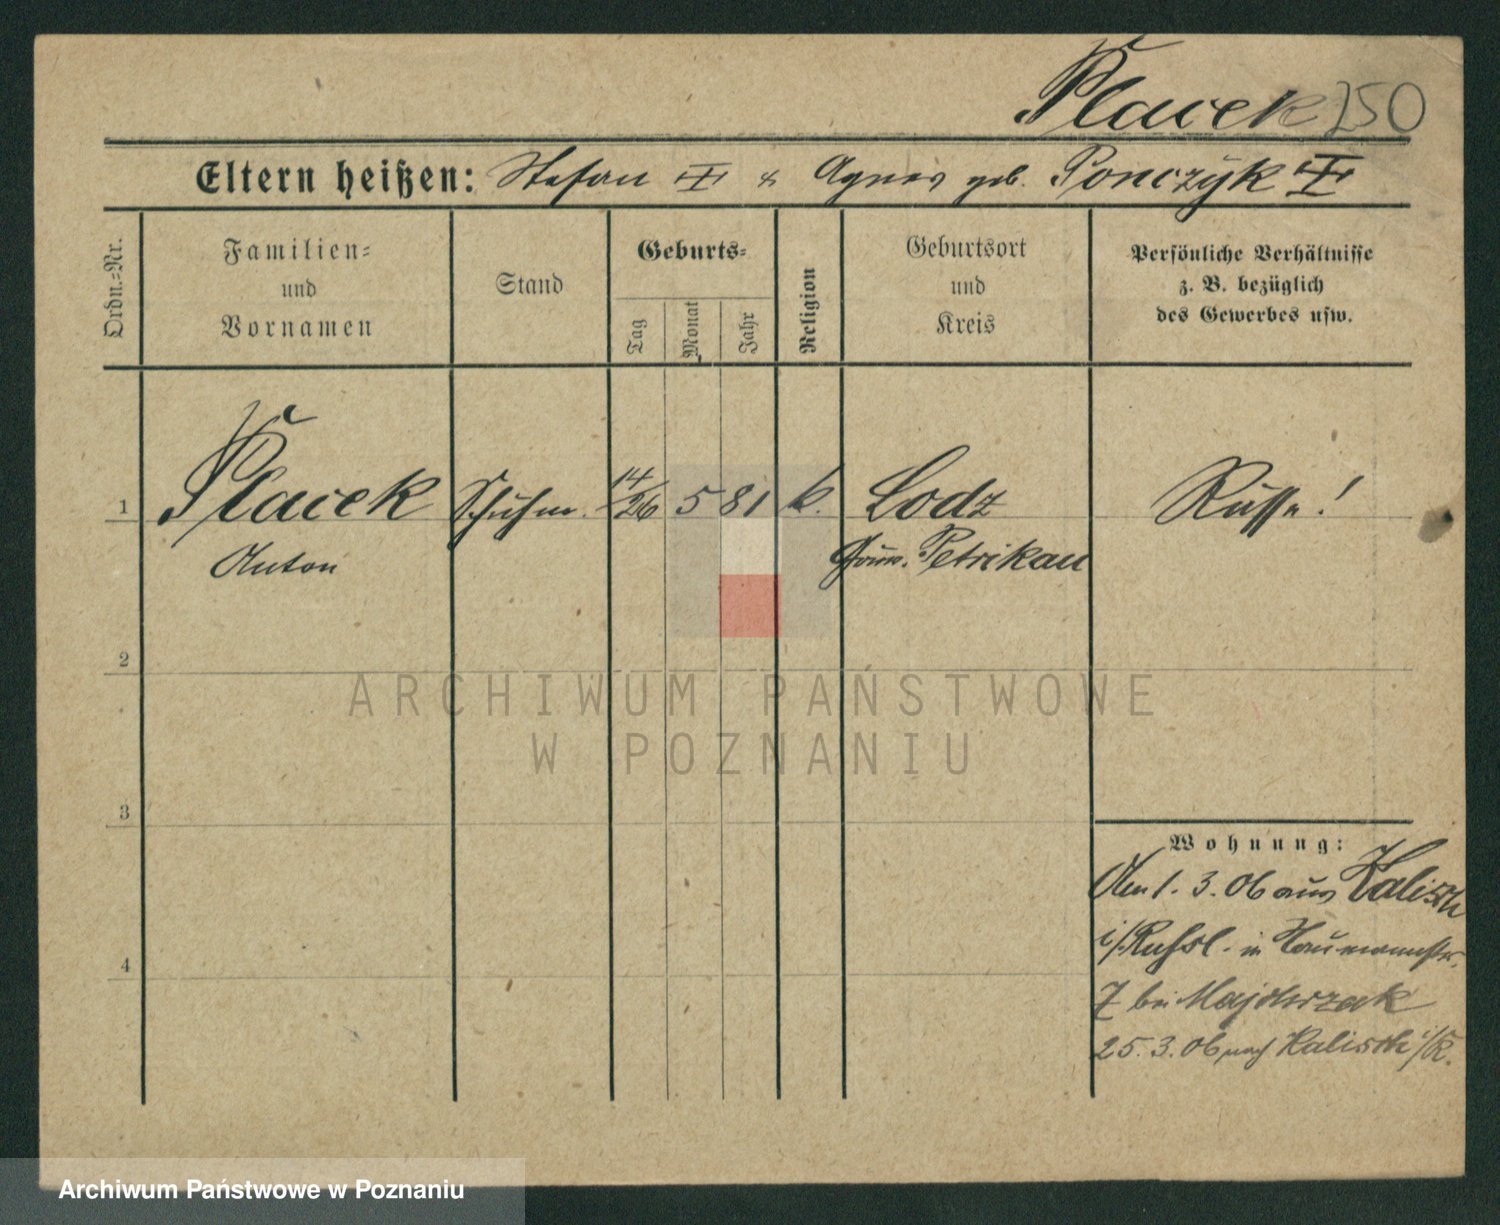 Placek 250
Eltern heißen: Stefan & Agnes geb. Ponczyk
Ordn.-Nr.
Familien-
und
Vornamen
Stand
Geburts-
Tag
Monat
Jahr
Religion
Geburtsort
und
Kreis
Persönliche Verhältnisse
z. B. bezüglich
des Gewerbes usw.
1 Placek Schuhm. 14/26 5 81 k. Lodz Russe!
Anton Gouv. Petrikau
2
3
4
Wohnung:
Am 1. 3. 06 aus Kalisch
i/Russl. in Naumannstr.
7 bei Majcherzak
25. 3. 06 nach Kalisch i/R.
ARCHIWUM PAŃSTWOWE
W POZNANIU
Archiwum Państwowe w Poznaniu